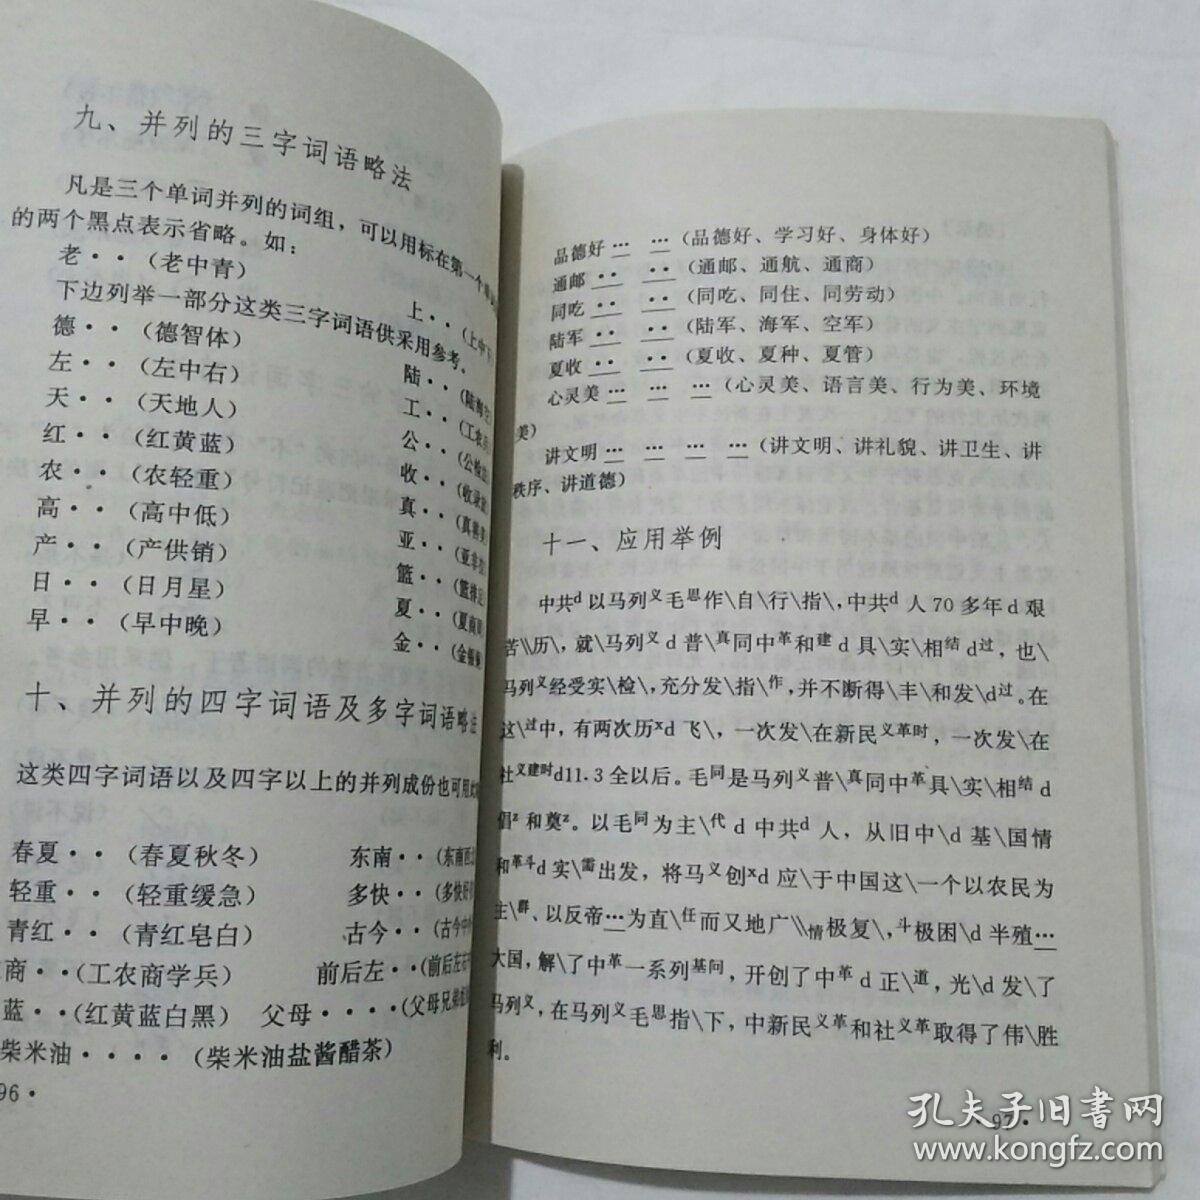 九、并列的三字词语略法
凡是三个单词并列的词组，可以用标在第一个
的两个黑点表示省略。如：
老··（老中青）
上··（上中下
下边列举一部分这类三字词语供采用参考。
德··（德智体）
陆··（陆海空
左··（左中右）
工··（工农兵
天··（天地人）
公··（公检法
红··（红黄蓝）
收··（收录放
农··（农轻重）
真··（真善美
高··（高中低）
亚··（亚非拉
产··（产供销）
篮··（篮排足
日··（日月星）
夏··（夏商周
早··（早中晚）
金··（金银铜
十、并列的四字词语及多字词语略法
这类四字词语以及四字以上的并列成份也可用
春夏··（春夏秋冬）
东南··（东南西北
轻重··（轻重缓急）
多快··（多快好省
青红··（青红皂白）
古今··（古今中外
商··（工农商学兵）
前后左··（前后左右
蓝··（红黄蓝白黑）
父母····（父母兄弟
柴米油····（柴米油盐酱醋茶）
96·
品德好… …（品德好、学习好、身体好）
通邮·· ··（通邮、通航、通商）
同吃·· ··（同吃、同住、同劳动）
陆军·· ··（陆军、海军、空军）
夏收·· ··（夏收、夏种、夏管）
心灵美… … …（心灵美、语言美、行为美、环境
美）
讲文明… … … …（讲文明、讲礼貌、讲卫生、讲
秩序、讲道德）
十一、应用举例
中共d以马列义毛思作\自\行\指\，中共d人70多年d艰
苦\\历\，就\马列义d普\真同中革和建d具\实\相结d过，也\
马列义经受实\检\，充分发\指\作，并不断得\丰\和发\d过。在
这\过中，有两次历xd飞\，一次发\在新民义革时，一次发\在
社义建时d11·3全以后。毛同是马列义普\真同中革具\实\相结d
倡z和奠z。以毛同为主\代d中共d人，从旧中\d基\国情
和革斗d实\需出发，将马义创xd应\于中国这\一个以农民为
主\群、以反帝…为直\任而又地广\\情极复\，斗极困\d半殖…
大国，解\了中革一系列基问，开创了中革d正\道，光\d发\了
马列义，在马列义毛思指\下，中新民义革和社义革取得了伟\胜
利。
·97·
孔夫子旧书网
www.kongfz.com